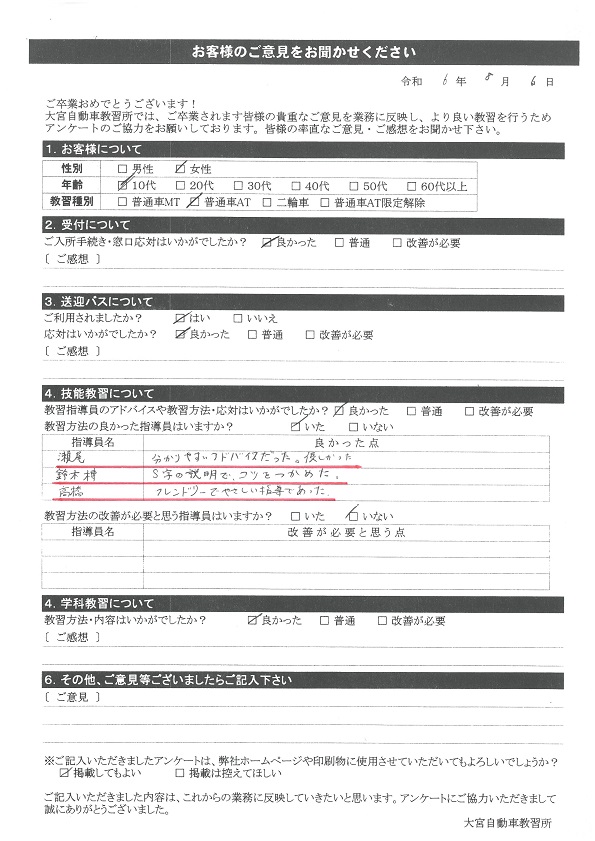 お客様のご意見をお聞かせください
令和 6 年 8 月 6 日
ご卒業おめでとうございます！
大宮自動車教習所では、ご卒業されます皆様の貴重なご意見を業務に反映し、より良い教習を行うため
アンケートのご協力をお願いしております。皆様の率直なご意見・ご感想をお聞かせ下さい。
1. お客様について
性別 □ 男性 ☑ 女性
年齢 ☑ 10代 □ 20代 □ 30代 □ 40代 □ 50代 □ 60代以上
教習種別 □ 普通車MT ☑ 普通車AT □ 二輪車 □ 普通車AT限定解除
2. 受付について
ご入所手続き・窓口応対はいかがでしたか？ ☑ 良かった □ 普通 □ 改善が必要
〔 ご感想 〕
3. 送迎バスについて
ご利用されましたか？ ☑ はい □ いいえ
応対はいかがでしたか？ ☑ 良かった □ 普通 □ 改善が必要
〔 ご感想 〕
4. 技能教習について
教習指導員のアドバイスや教習方法・応対はいかがでしたか？ ☑ 良かった □ 普通 □ 改善が必要
教習方法の良かった指導員はいますか？ ☑ いた □ いない
指導員名 良かった点
瀬尾 分かりやすいアドバイスだった。優しかった
鈴木 S字の説明で、コツをつかめた。
高橋 フレンドリーでやさしい指導であった。
教習方法の改善が必要と思う指導員はいますか？ □ いた ☑ いない
指導員名 改善が必要と思う点
4. 学科教習について
教習方法・内容はいかがでしたか？ ☑ 良かった □ 普通 □ 改善が必要
〔 ご感想 〕
6. その他、ご意見等ございましたらご記入下さい
〔 ご意見 〕
※ご記入いただきましたアンケートは、弊社ホームページや印刷物に使用させていただいてもよろしいでしょうか？
☑ 掲載してもよい □ 掲載は控えてほしい
ご記入いただきました内容は、これからの業務に反映していきたいと思います。アンケートにご協力いただきまして
誠にありがとうございました。
大宮自動車教習所